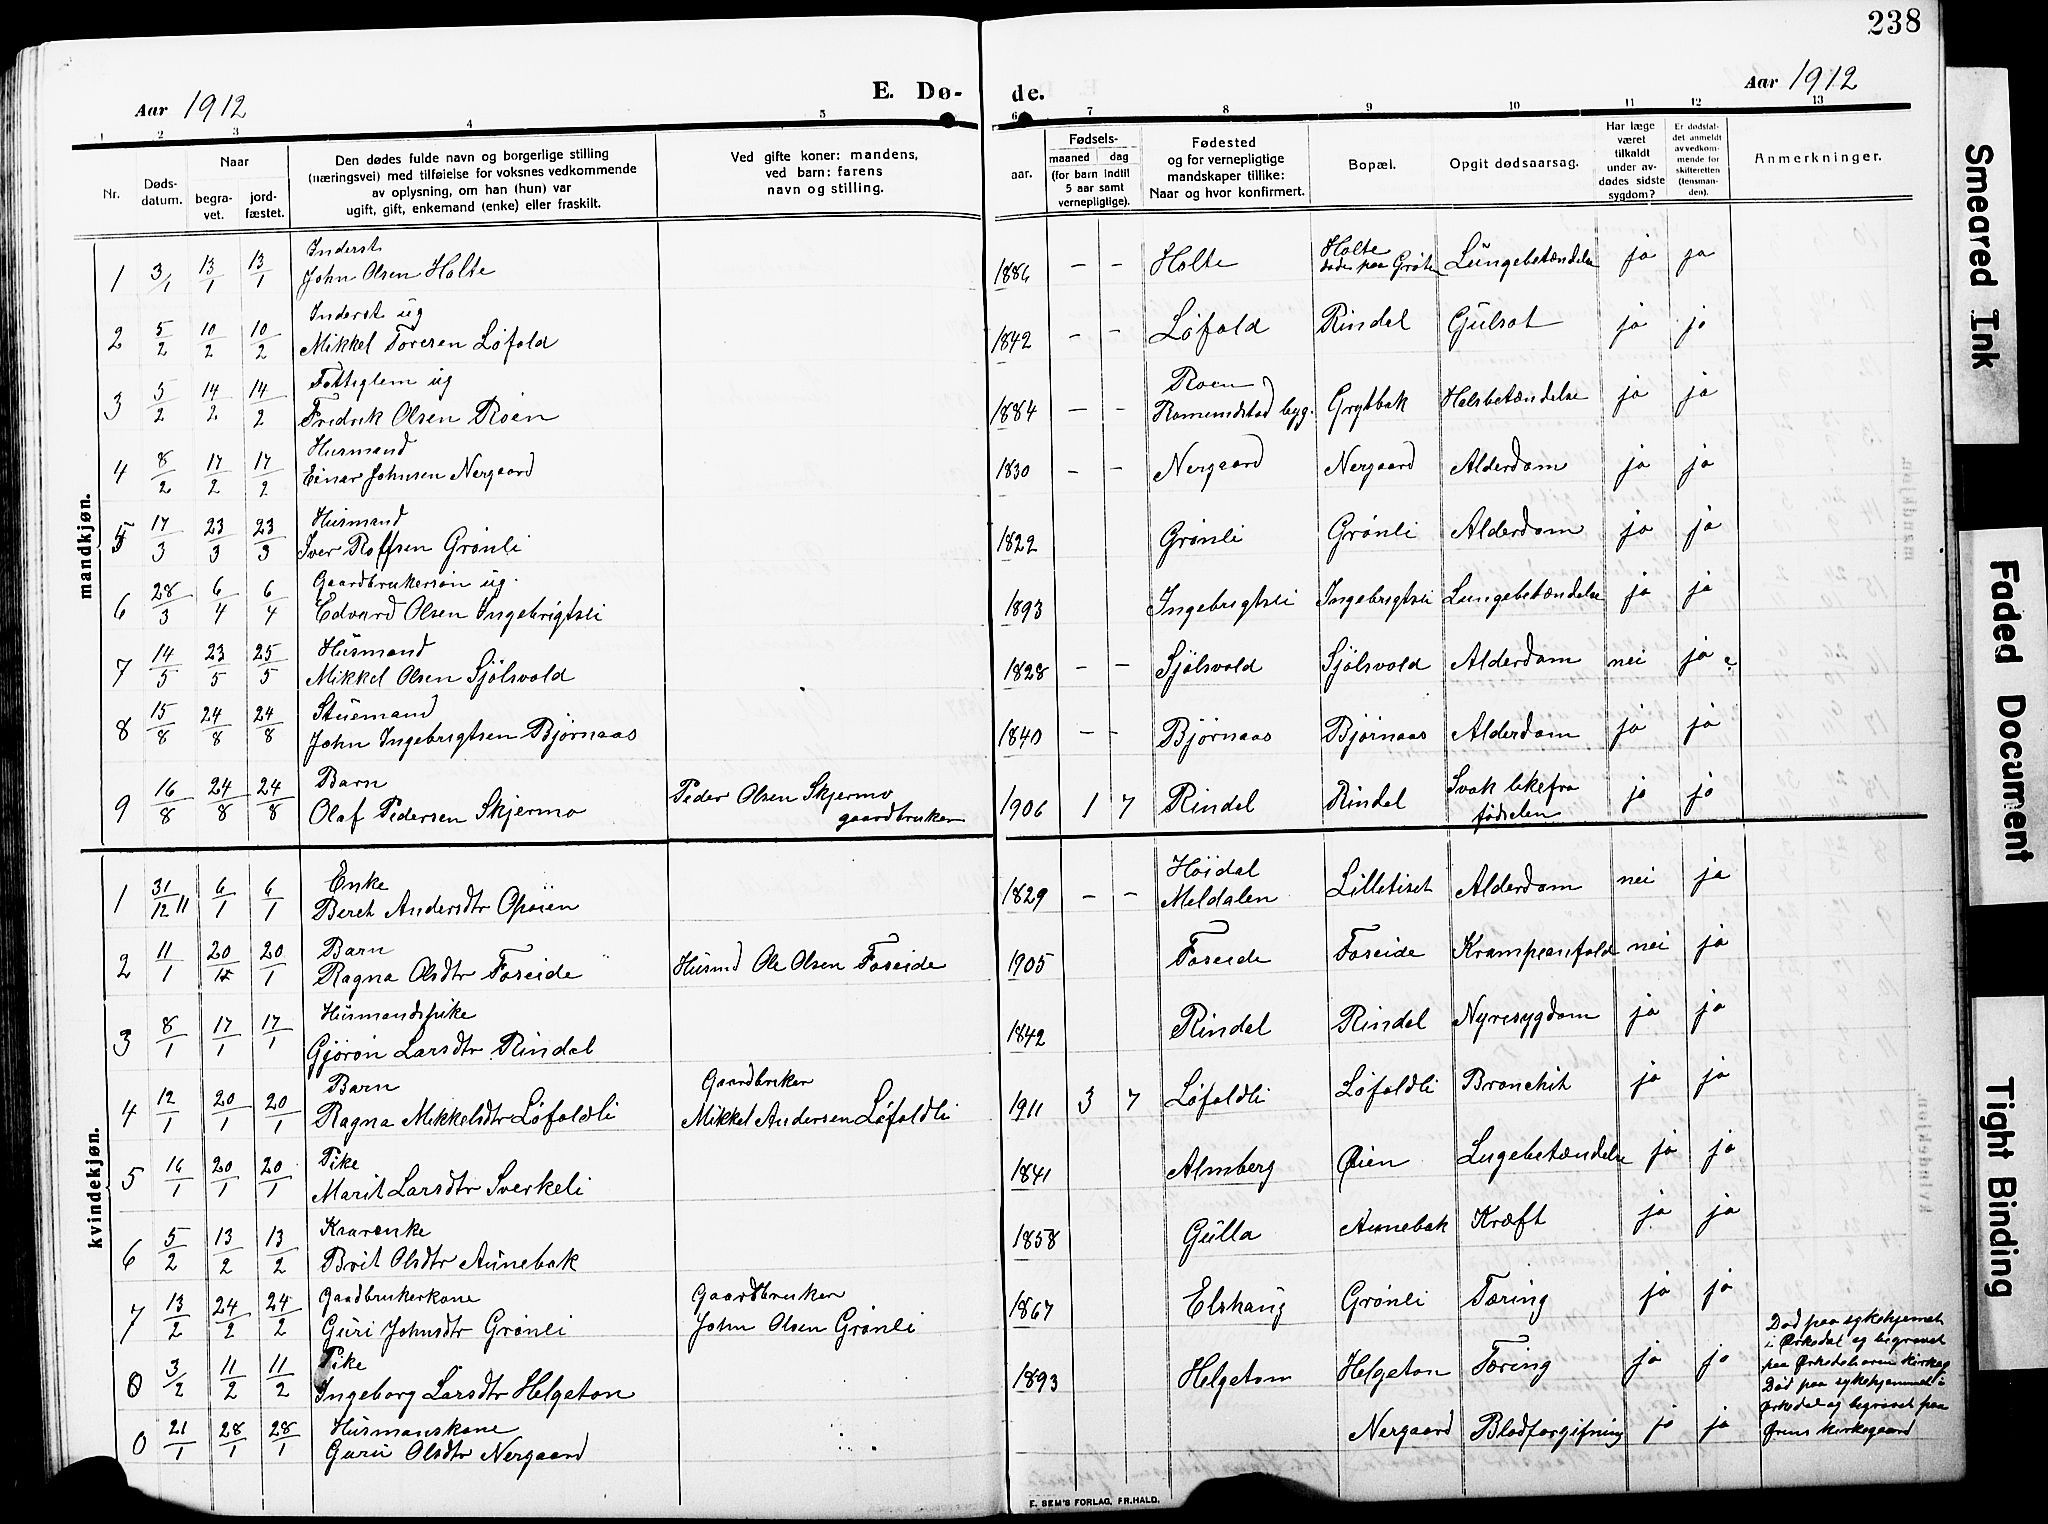 238
Aar 1912
E. Dø-
de.
Aar 1912
1 2 3 4 5 6 7 8 9 10 11 12 13
Nr.
Døds-
datum.
Naar
begra-
vet.
jord-
fæstet.
Den dødes fulde navn og borgerlige stilling
(næringsvei) med tilføielse for voksnes vedkommende
av oplysning, om han (hun) var
ugift, gift, enkemand (enke) eller fraskilt.
Ved gifte koner: mandens,
ved barn: farens
navn og stilling.
Fødsels-
aar.
maaned dag
(for barn indtil
5 aar samt
vernepligtige).
Fødested
og for vernepligtige
mandskaper tillike:
Naar og hvor konfirmert.
Bopæl.
Opgit dødsaarsag.
Har læge
været
tilkaldt
under av-
dødes sidste
sygdom?
Er dødsfal-
det anmeldt
av vedkom-
mende for
skifteretten
(lensman-
den).
Anmerkninger.
mandkjøn.
Inderst
1 3/1 13/1 13/1 John Olsen Holte 1886 – – Holte Holte døde paa Lungebetændelse ja ja
Inderst ug
2 5/2 10/2 10/2 Mikkel Toresen Løfald 1842 – – Løfald Rindal Gulsot ja ja
Fattiglem ug
3 5/2 14/2 14/2 Fredrik Olsen Roen 1884 – – Roen Romundstad byg. Grytbak Halsbetændelse ja ja
Husmand
4 8/2 17/2 17/2 Einar Johnsen Nergaard 1830 – – Nergaard Nergaard Alderdom ja ja
Husmand
5 17/3 23/3 23/3 Iver Rolfsen Grønli 1822 Grønli Grønli Alderdom ja ja
Gaardbrukersøn ug.
6 28/3 6/4 6/4 Edvard Olsen Ingebrigtsli 1893 Ingebrigtsli Ingebrigtsli Lungebetændelse ja ja
Husmand
7 14/5 23/5 25/5 Mikkel Olsen Sjølsvold 1828 – – Sjølsvold Sjølsvold Alderdom nei ja
Stuemand
8 15/8 24/8 24/8 John Ingebrigtsen Bjørnaas 1840 – – Bjørnaas Bjørnaas Alderdom ja ja
Barn
9 16/8 24/8 24/8 Olaf Pedersen Skjermo Peder Olsen Skjermo gaardbruker 1906 1 7 Rindal Rindal Svak like fra fødselen ja ja
kvindekjøn.
Enke
1 31/12 11 6/1 6/1 Beret Andersdtr Opøien 1829 – – Høidal Meldalen Lilletiset Alderdom nei ja
Barn
2 11/1 20/1 20/1 Ragna Olsdtr Foseide Husmd Ole Olsen Foseide 1905 Foseide Foseide Krampeanfald nei ja
Husmandspike
3 8/1 17/1 17/1 Gjørøn Larsdtr Rindal 1842 Rindal Rindal Nyresygdom ja ja
Barn Gaardbruker
4 12/1 20/1 20/1 Ragna Mikkelsdtr Løfaldli Mikkel Andersen Løfaldli 1911 3 7 Løfaldli Løfaldli Bronchit ja ja
Pike
5 16/1 20/1 20/1 Marit Larsdtr Sverkeli 1841 Almberg Øien Lugebetændelse ja ja
Kaarenke
6 5/2 13/2 13/2 Brit Olsdtr Aunebak 1858 Gulla Aunebak Kræft ja ja
Gaadbrukerkone Gaardbruker
7 13/2 24/2 24/2 Guri Johnsdtr Grønli John Olsen Grønli 1867 Elshaug Grønli Tæring ja ja
Pike
0 3/2 11/2 11/2 Ingeborg Larsdtr Helgeton 1893 Helgetom Helgeton Tæring ja ja
Død paa sykehjemet
i Ørkedal og begravet
paa
Husmanskone
0 21/1 28/1 28/1 Guru Olsdtr Nergaard Nergaard Blodforgifning ja ja
Død paa sykehjemmet i
Ørkedal og begravet paa
Ørens Kirkegaard
E. SEM'S FORLAG, FR.HALD.
Smeared Ink
Faded Document
Tight Binding